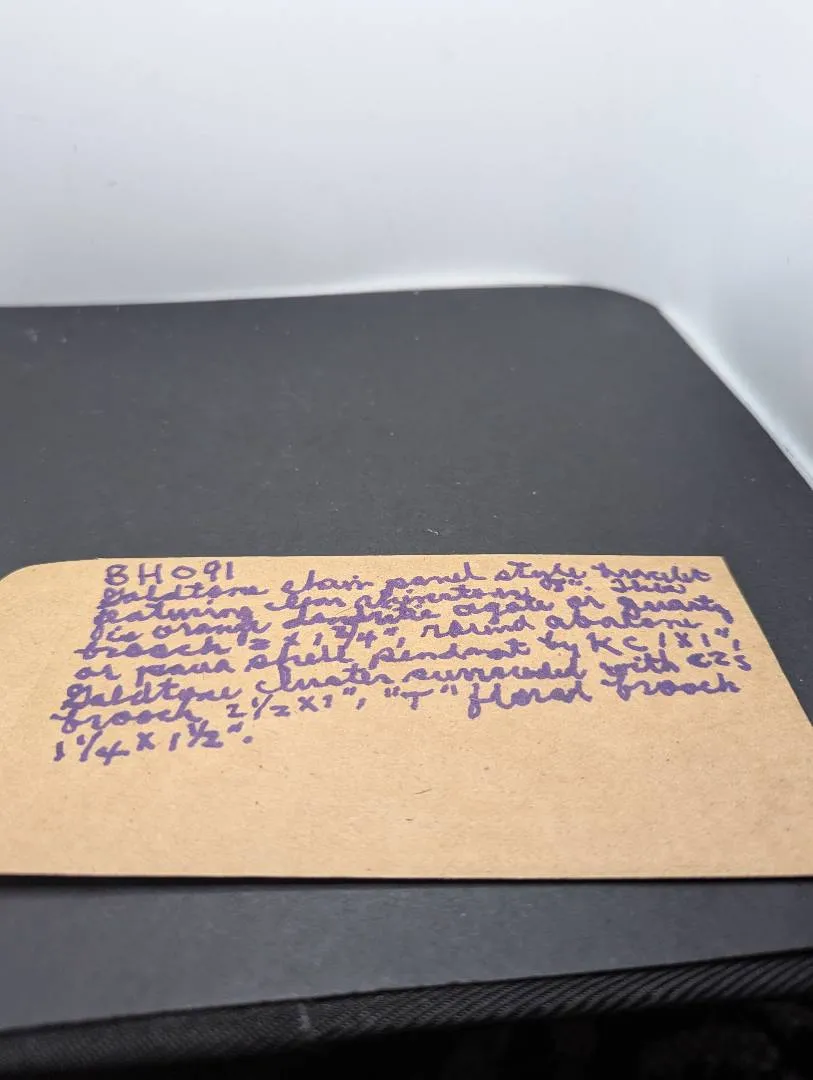 BH091
Goldtone chain panel style bracelet
featuring gem 7". This
is orange agate or quartz
brooch 2 x 1 3/4", round abalone
or paua shell pendant by KC 1 x 1",
Goldtone cluster surrouded with CZs
brooch, 2 1/2 x 2", "T" floral brooch
1 1/4 x 1 1/2".